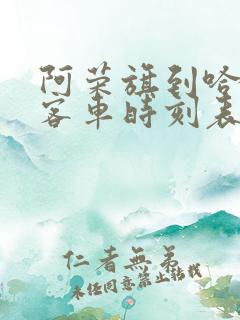 阿荣旗到哈
客车时刻表
仁者無弟
未经同意禁止转载